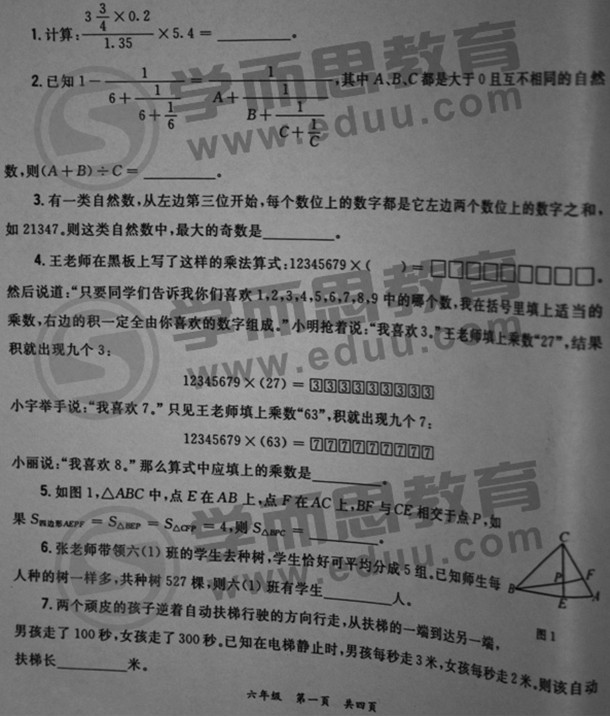 1.计算:(3 3/4×0.2)/1.35×5.4=________。
2.已知1-1/(6+1/(6+1/6))=1/(A+1/(B+1/(C+1/C))),其中A、B、C都是大于0且互不相同的自然
数,则(A+B)÷C=________。
3.有一类自然数,从左边第三位开始,每个数位上的数字都是它左边两个数位上的数字之和,
如21347。则这类自然数中,最大的奇数是________。
4.王老师在黑板上写了这样的乘法算式:12345679×(  )=□□□□□□□□□。
然后说道:“只要同学们告诉我你们喜欢1,2,3,4,5,6,7,8,9中的哪个数,我在括号里填上适当的
乘数,右边的积一定全由你喜欢的数字组成。”小明抢着说:“我喜欢3。”王老师填上乘数“27”,结果
积就出现九个3;
12345679×(27)=333333333
小宇举手说:“我喜欢7。”只见王老师填上乘数“63”,积就出现九个7;
12345679×(63)=777777777
小丽说:“我喜欢8。”那么算式中应填上的乘数是________。
5.如图1,△ABC中,点E在AB上,点F在AC上,BF与CE相交于点P,如
果S四边形AEPF=S△BEP=S△CFP=4,则S△BPC=________。
6.张老师带领六(1)班的学生去种树,学生恰好可平均分成5组。已知师生每
人种的树一样多,共种树527棵,则六(1)班有学生________人。
C
P
F
B
E
A
图1
7.两个顽皮的孩子逆着自动扶梯行驶的方向行走,从扶梯的一端到达另一端,
男孩走了100秒,女孩走了300秒。已知在电梯静止时,男孩每秒走3米,女孩每秒走2米。则该自动
扶梯长________米。
六年级 第一页 共四页
学而思教育
www.eduu.com
学而思教育
www.eduu.com
学而思教育
www.eduu.com